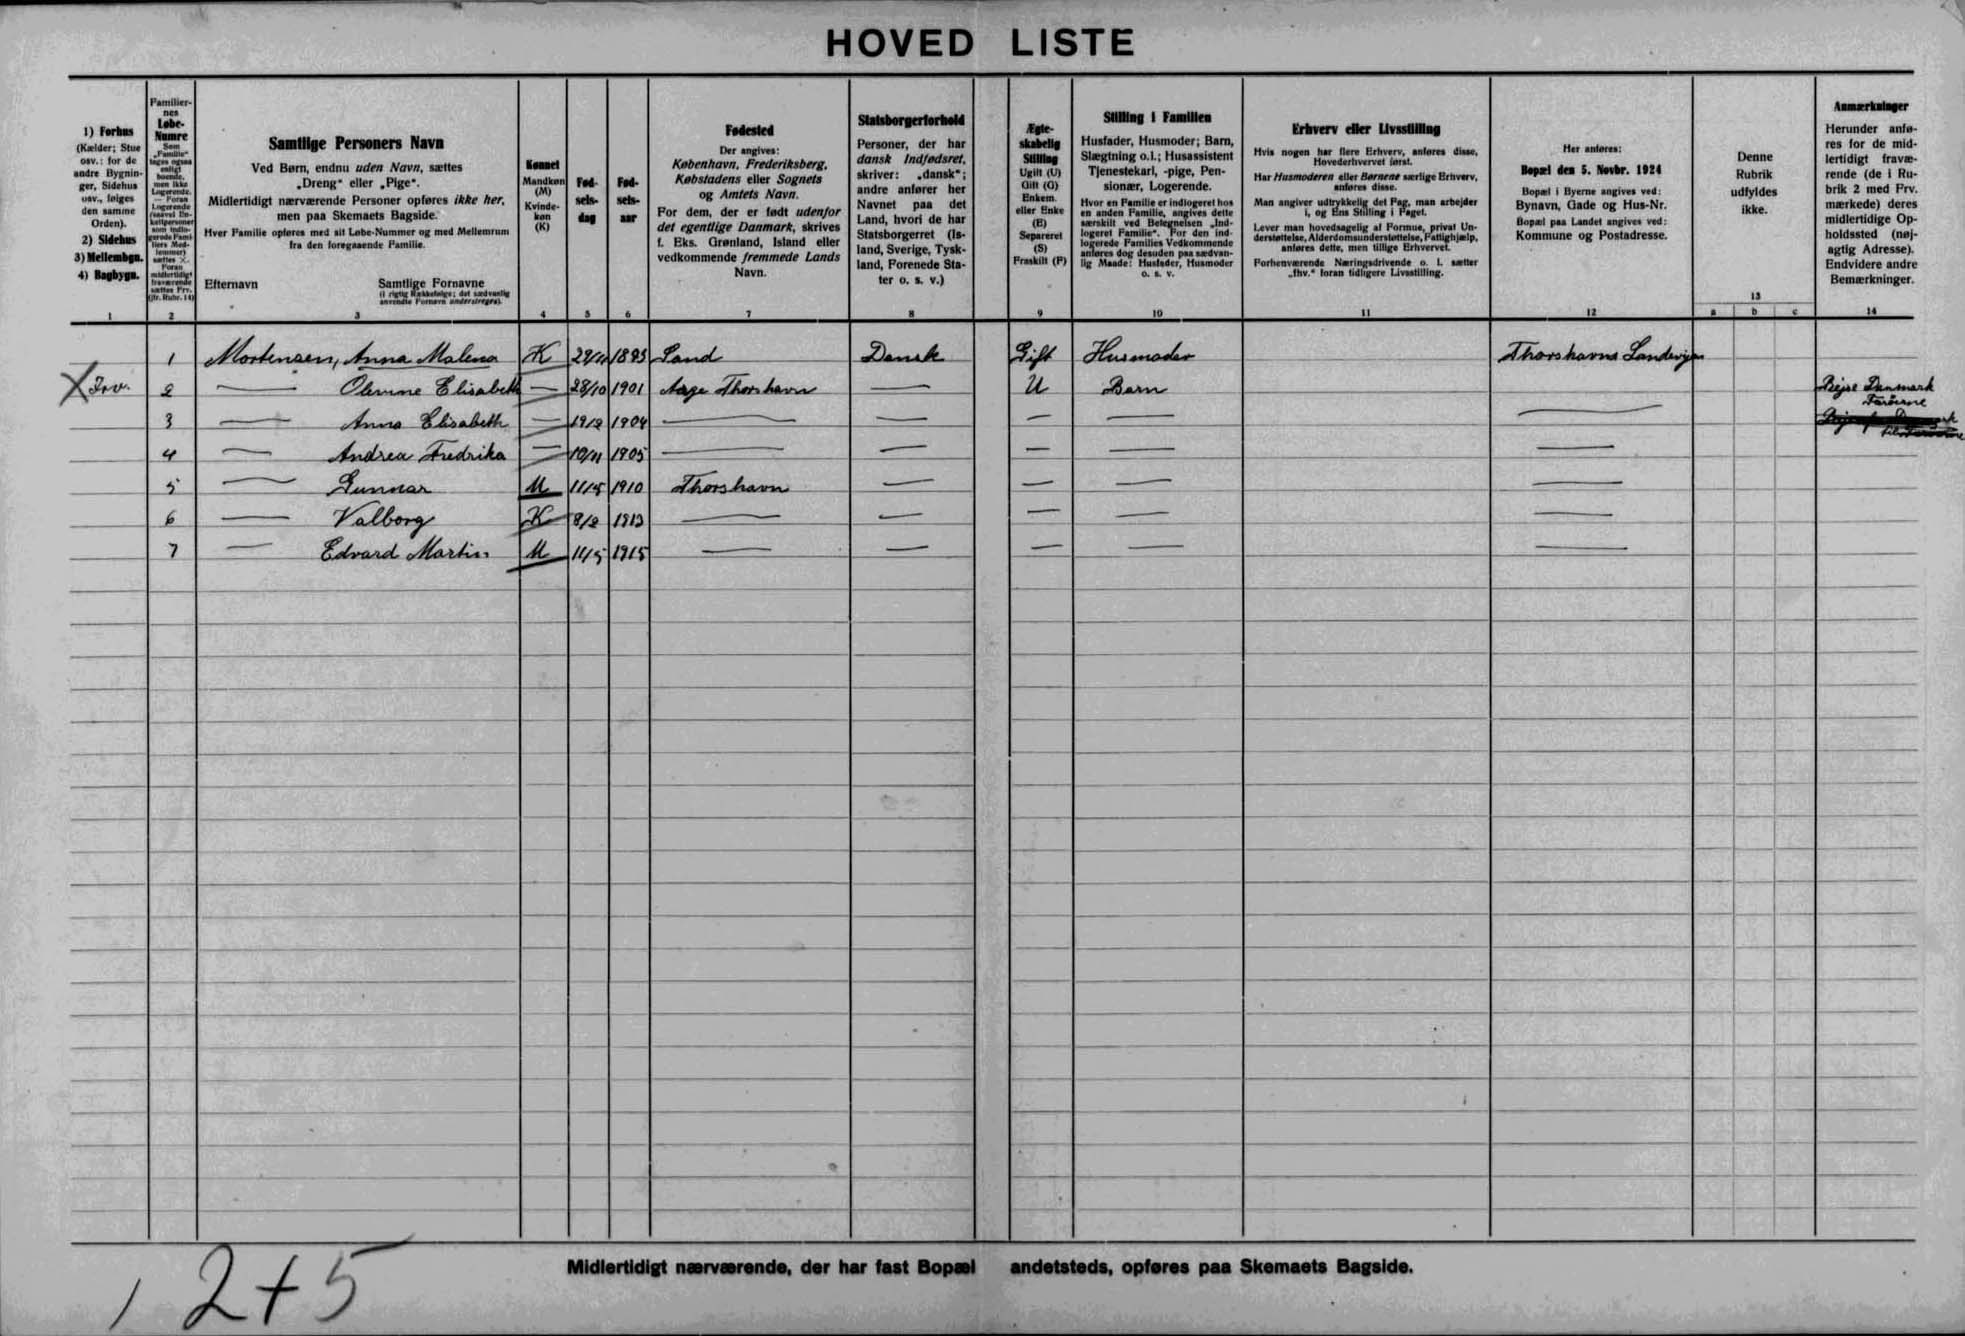 HOVED LISTE
1) Forhus
(Kælder; Stue
osv.: for de
andre Bygnin-
ger, Sidehus
osv., følges
den samme
Orden).
2) Sidehus
3) Mellembgn.
4) Bagbygn.
1
Familier-
nes
Løbe-
Numre
Som
„Familie“
tages ogsaa
enligt
boende,
men ikke
Logerende.
— Foran
Logerende
sættes ×.
Foran
midlertidigt
fraværende
sættes Frv.
(jfr. Rubr. 14)
2
Samtlige Personers Navn
Ved Børn, endnu uden Navn, sættes
„Dreng“ eller „Pige“.
Midlertidigt nærværende Personer opføres ikke her,
men paa Skemaets Bagside.
Hver Familie opføres med sit Løbe-Nummer og med Mellemrum
fra den foregaaende Familie.
Efternavn Samtlige Fornavne
(i rigtig Rækkefølge; det sædvanlig
anvendte Fornavn understreges).
3
Kønnet
Mandkøn
(M)
Kvinde-
køn
(K)
4
Fød-
sels-
dag
5
Fød-
sels-
aar
6
Fødested
Der angives:
København, Frederiksberg,
Købstadens eller Sognets
og Amtets Navn.
For dem, der er født udenfor
det egentlige Danmark, skrives
f. Eks. Grønland, Island eller
vedkommende fremmede Lands
Navn.
7
Statsborgerforhold
Personer, der har
dansk Indfødsret,
skriver: „dansk“;
andre anfører her
Navnet paa det
Land, hvori de har
Statsborgerret (Is-
land, Sverige, Tysk-
land, Forenede Sta-
ter o. s. v.)
8
Ægte-
skabelig
Stilling
Ugift (U)
Gift (G)
Enkem.
eller Enke
(E)
Separeret
(S)
Fraskilt (F)
9
Stilling i Familien
Husfader, Husmoder; Barn,
Slægtning o.l.; Husassistent
Tjenestekarl, -pige, Pen-
sionær, Logerende.
Hvor en Familie er indlogeret hos
en anden Familie, angives dette
særskilt ved Betegnelsen „Ind-
logeret Familie“. For den ind-
logerede Families Vedkommende
anføres dog desuden paa sædvan-
lig Maade: Husfader, Husmoder
o. s. v.
10
Erhverv eller Livsstilling
Hvis nogen har flere Erhverv, anføres disse,
Hovederhvervet først.
Har Husmoderen eller Børnene særlige Erhverv,
anføres disse.
Man angiver udtrykkelig det Fag, man arbejder
i, og Ens Stilling i Faget.
Lever man hovedsagelig af Formue, privat Un-
derstøttelse, Alderdomsunderstøttelse, Fattighjælp,
anføres dette, men tillige Erhvervet.
Forhenværende Næringsdrivende o. l. sætter
„fhv.“ foran tidligere Livsstilling.
11
Her anføres:
Bopæl den 5. Novbr. 1924
Bopæl i Byerne angives ved:
Bynavn, Gade og Hus-Nr.
Bopæl paa Landet angives ved:
Kommune og Postadresse.
12
Denne
Rubrik
udfyldes
ikke.
13
a b c
Anmærkninger
Herunder anfø-
res for de mid-
lertidigt fravæ-
rende (de i Ru-
brik 2 med Frv.
mærkede) deres
midlertidige Op-
holdssted (nøj-
agtig Adresse).
Endvidere andre
Bemærkninger.
14
1 Mortensen, Anna Malena K 29/11 1883 Sand Dansk Gift Husmoder Thorshavns
X Frv. 2 — Olevine Elisabeth — 28/10 1901 Aage Thorshavn — U Barn Rejse Danmark
Farøerne
3 — Anna Elisabeth — 19/2 1904 — — — — —
4 — Andrea Fredrika — 10/11 1905 — — — — —
5 — Gunnar M 11/5 1910 Thorshavn — — — —
6 — Valborg K 8/2 1913 — — — — —
7 — Edvard Martin M 11/5 1915 — — — — —
Midlertidigt nærværende, der har fast Bopæl andetsteds, opføres paa Skemaets Bagside.
1 2+5